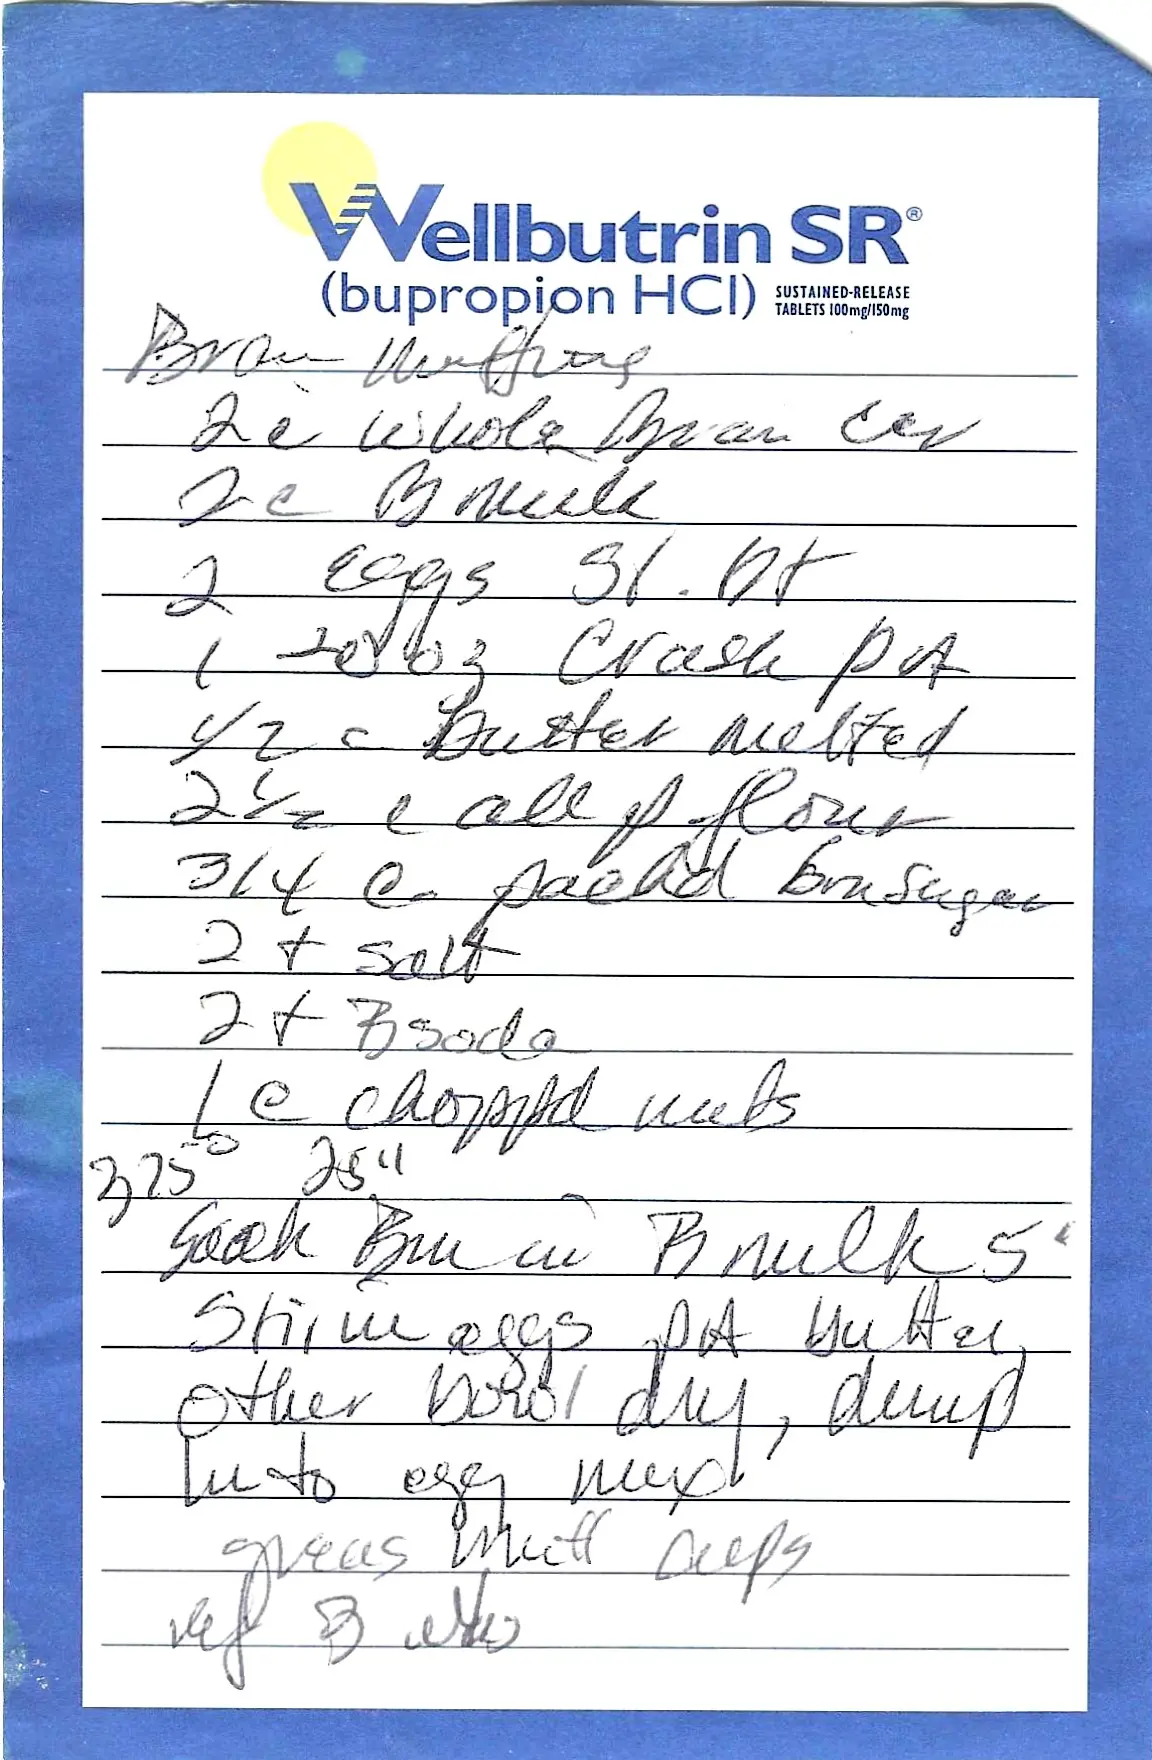 Wellbutrin SR®
(bupropion HCl) SUSTAINED-RELEASE
TABLETS 100mg/150mg
Bran Muffins
2 c Whole Bran cer
2 c B milk
2 eggs sl. bt
1 20 oz Crush PA
1/2 c butter melted
2 1/2 c all p flour
3/4 c packd brn sugar
2 t salt
2 t B soda
1 c choppd nuts
375° 25"
Soak Brn in B milk 5"
Stir in eggs PA butter,
other bowl dry, dump
into egg mix
greas muff cups
ref 3 wks